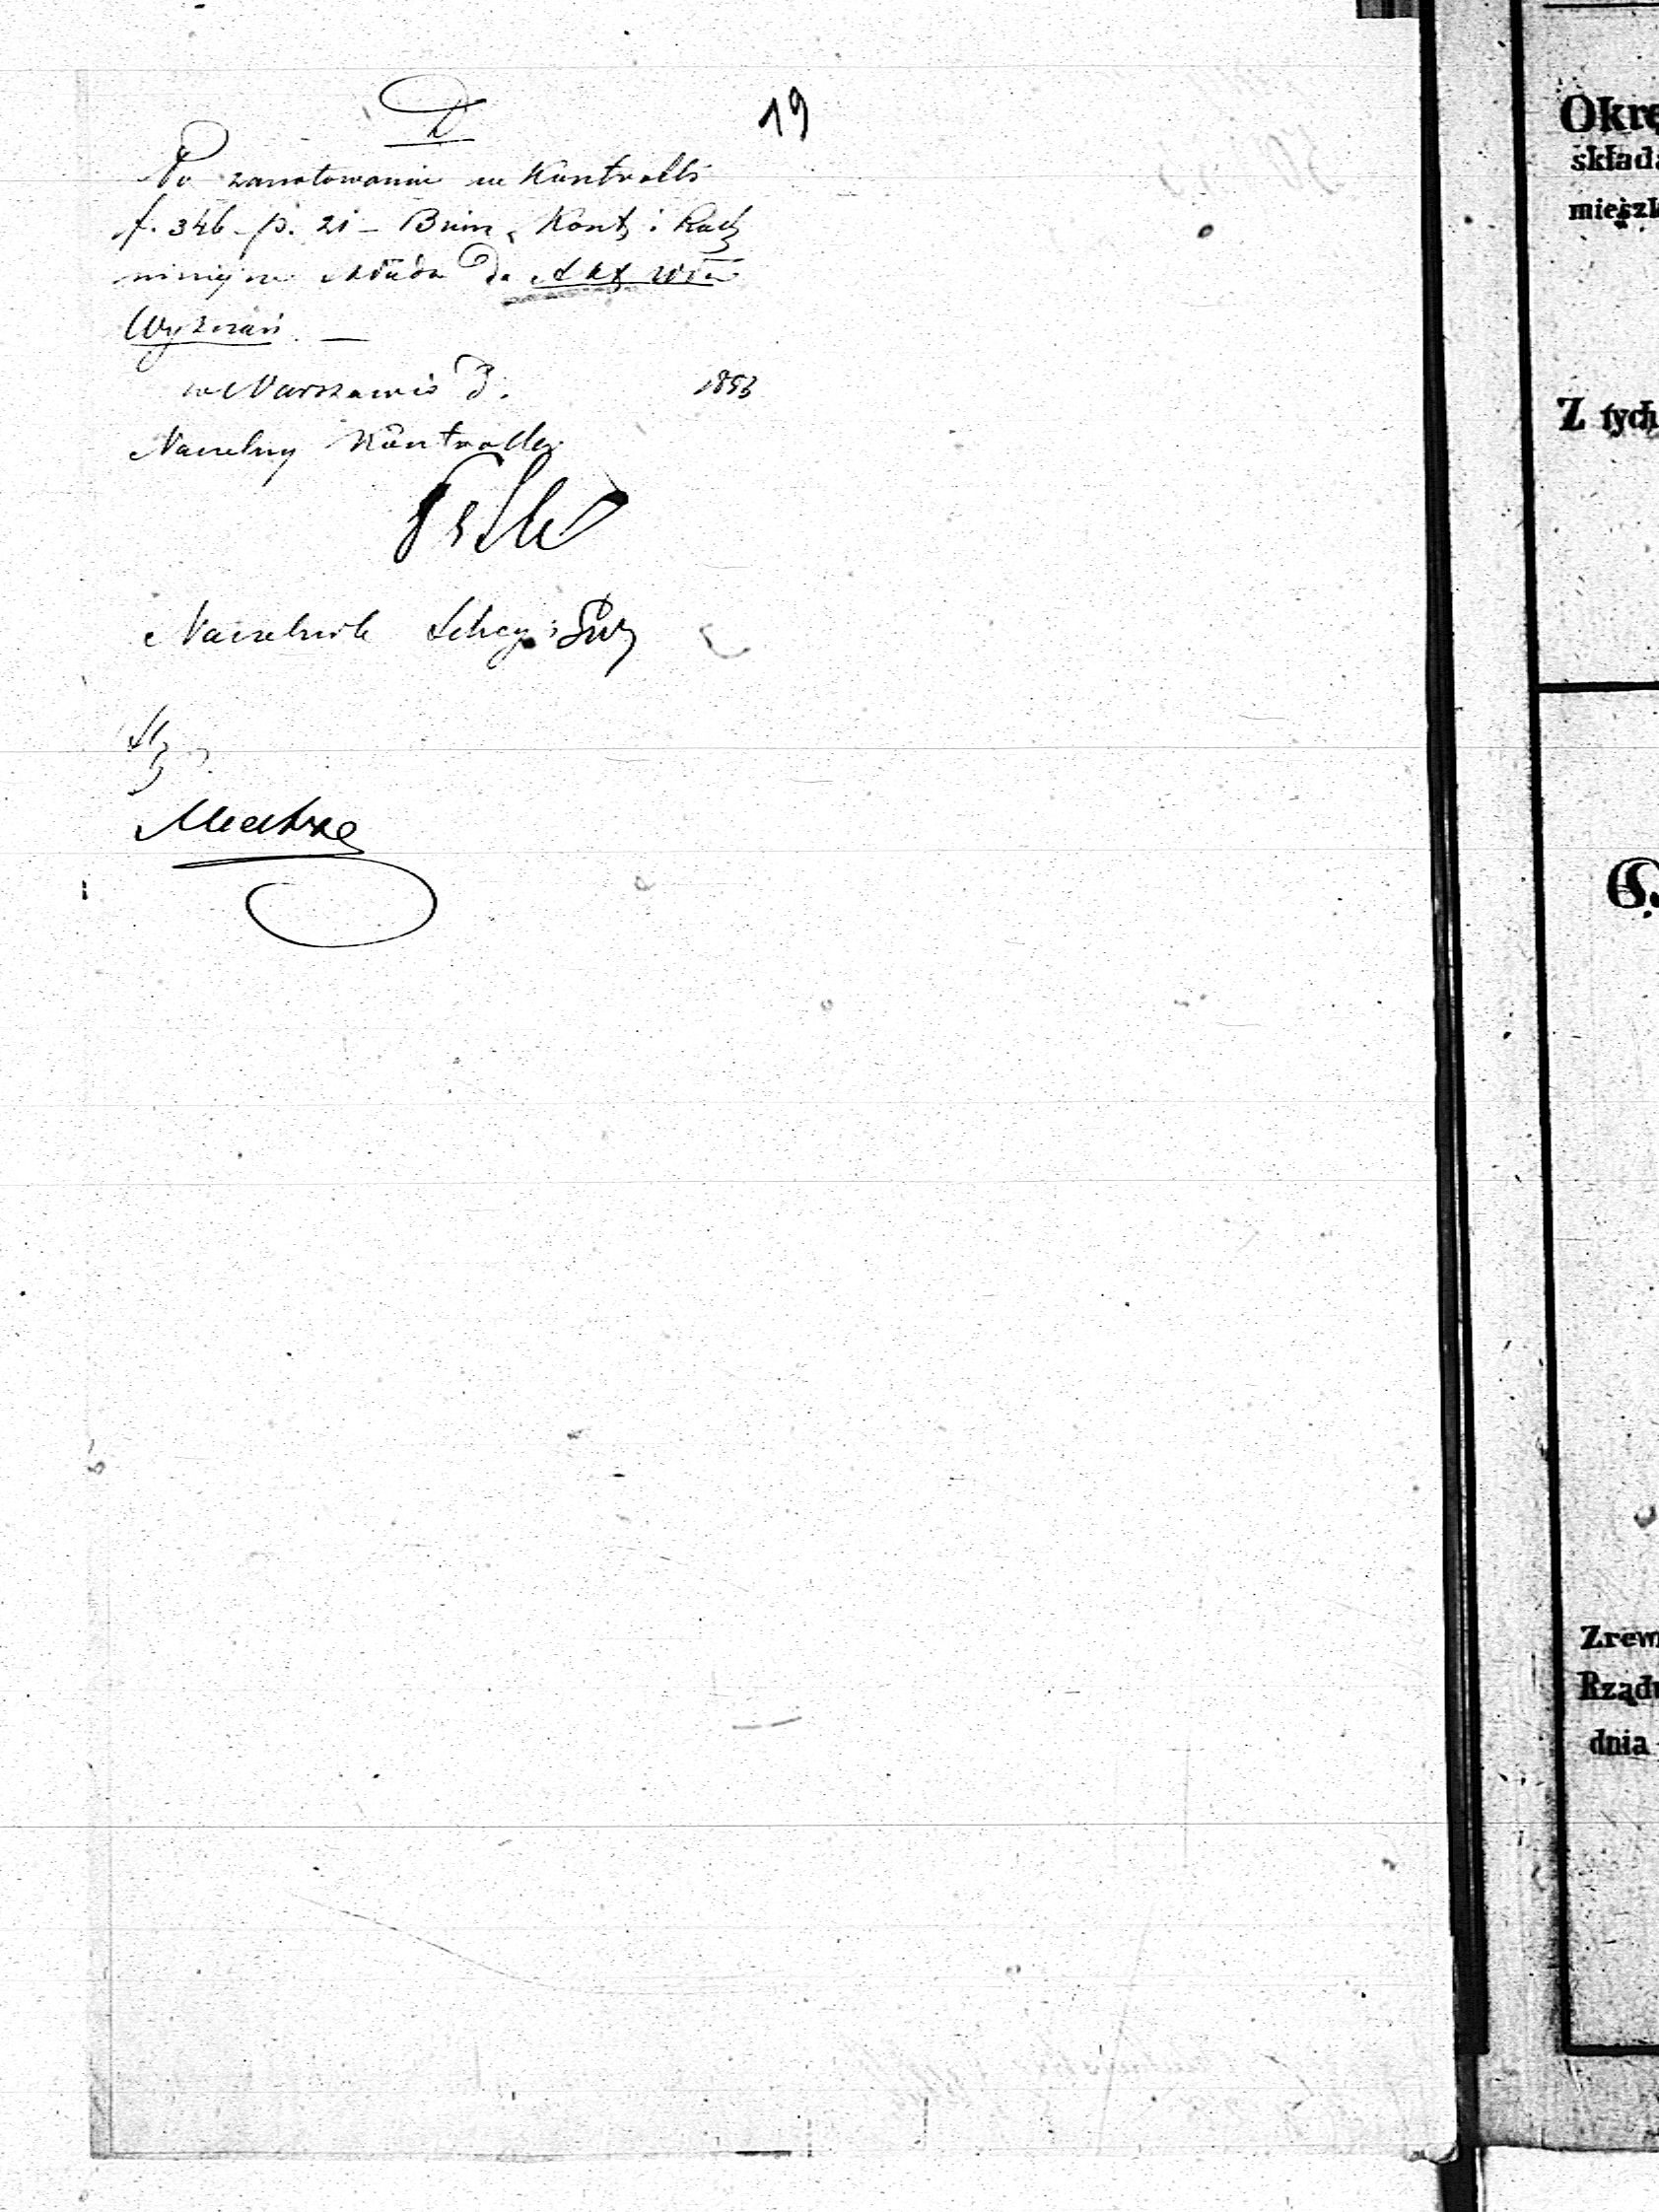 D
19
Po zanotowaniu w Kontrolli
f. 346 - p. 21 - Biura Kont. i Rach
niniejsze składa do Akt wsi
Wyznań. —
w Warszawie d. 1853
Naczelny Kontroller
Naczelnik Sekcyi
Okrę
składa
mieszk
Z tych
Zrew
Rządu
dnia